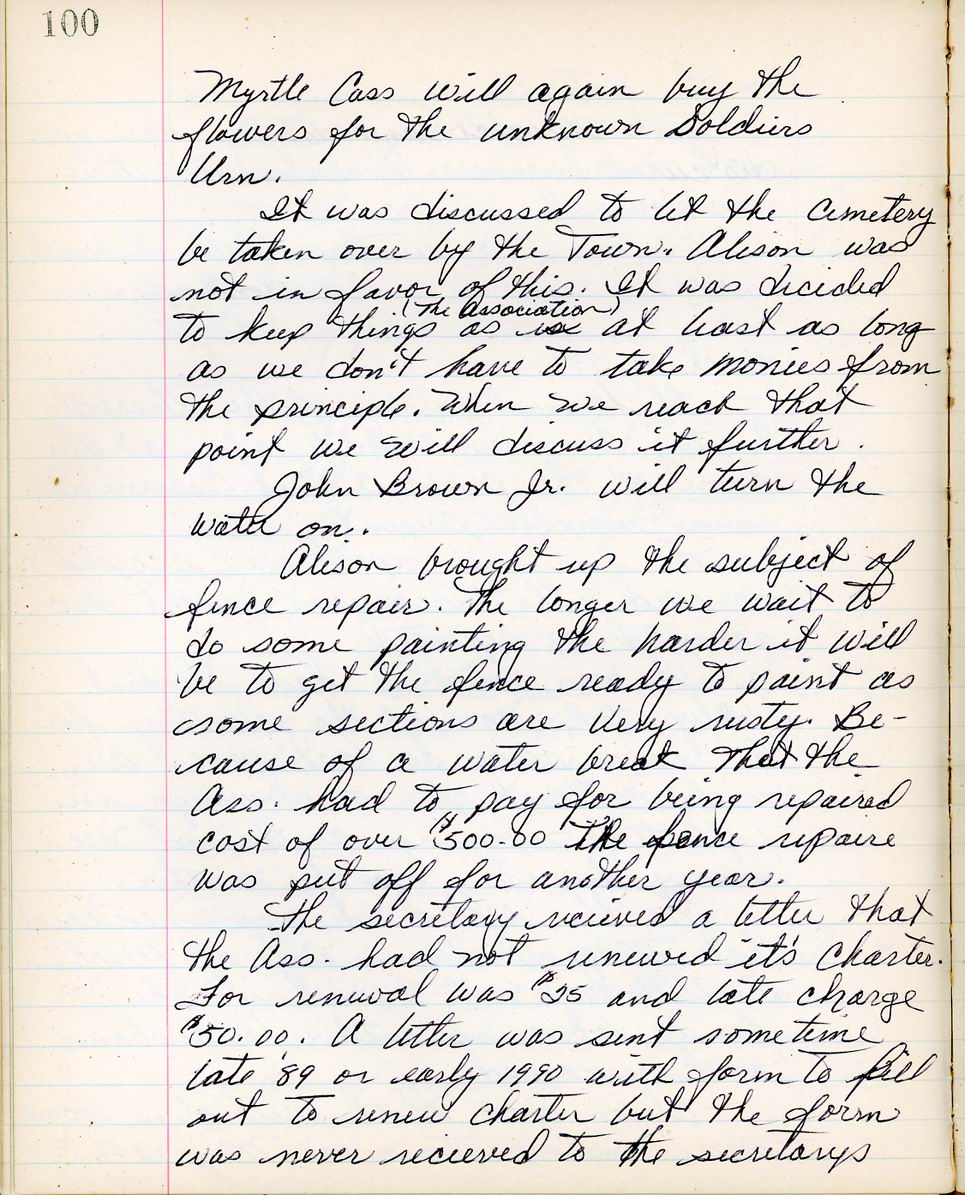 100
Myrtle Cass will again buy the
flowers for the unknown Soldiers
Urn.
It was discussed to let the Cemetery
be taken over by the Town. Alison was
not in favor of this. It was dicided
(The Association)
to keep things as is at least as long
as we don't have to take monies from
the principle. When we reach that
point we will discuss it further.
John Brown Jr. will turn the
water on.
Alison brought up the subject of
fence repair. The longer we wait to
do some painting the harder it will
be to get the fence ready to paint as
some sections are very rusty. Be-
cause of a water break that the
Ass. had to pay for being repaired
cost of over $500.00 The fence repaire
was put off for another year.
The secretary recieved a letter that
the Ass. had not renewed it's Charter.
For renewal was $25 and late charge
$50.00. A letter was sent sometime
late '89 or early 1990 with form to fill
out to renew charter but the form
was never recieved to the secretarys